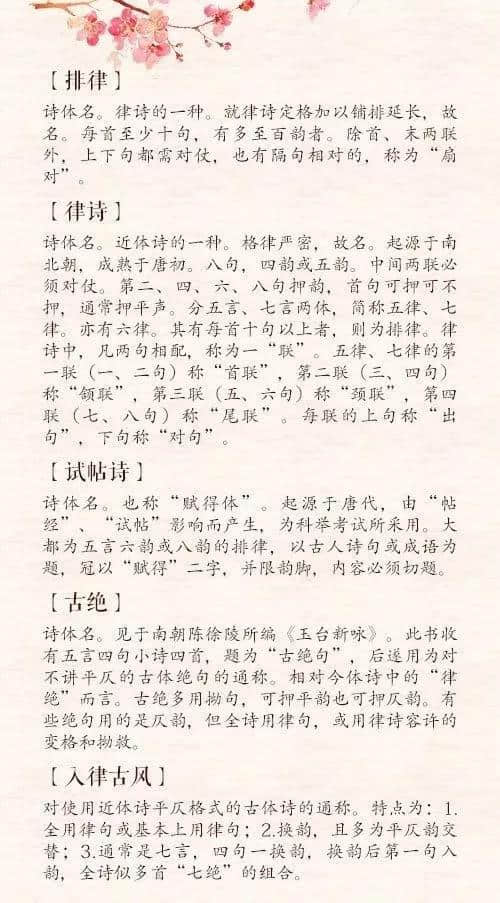 【排律】
诗体名。律诗的一种。就律诗定格加以铺排延长，故
名。每首至少十句，有多至百韵者。除首、末两联
外，上下句都需对仗，也有隔句相对的，称为“扇
对”。
【律诗】
诗体名。近体诗的一种。格律严密，故名。起源于南
北朝，成熟于唐初。八句，四韵或五韵。中间两联必
须对仗。第二、四、六、八句押韵，首句可押可不
押，通常押平声。分五言、七言两体，简称五律、七
律。亦有六律。其有每首十句以上者，则为排律。律
诗中，凡两句相配，称为一“联”。五律、七律的第
一联（一、二句）称“首联”，第二联（三、四句）
称“颔联”，第三联（五、六句）称“颈联”，第四
联（七、八句）称“尾联”。每联的上句称“出
句”，下句称“对句”。
【试帖诗】
诗体名。也称“赋得体”。起源于唐代，由“帖
经”、“试帖”影响而产生，为科举考试所采用。大
都为五言六韵或八韵的排律，以古人诗句或成语为
题，冠以“赋得”二字，并限韵脚，内容必须切题。
【古绝】
诗体名。见于南朝陈徐陵所编《玉台新咏》。此书收
有五言四句小诗四首，题为“古绝句”，后遂用为对
不讲平仄的古体绝句的通称。相对今体诗中的“律
绝”而言。古绝多用拗句，可押平韵也可押仄韵。有
些绝句用的是仄韵，但全诗用律句，或用律诗容许的
变格和拗救。
【入律古风】
对使用近体诗平仄格式的古体诗的通称。特点为：1.
全用律句或基本上用律句；2.换韵，且多为平仄韵交
替；3.通常是七言，四句一换韵，换韵后第一句入
韵，全诗似多首“七绝”的组合。